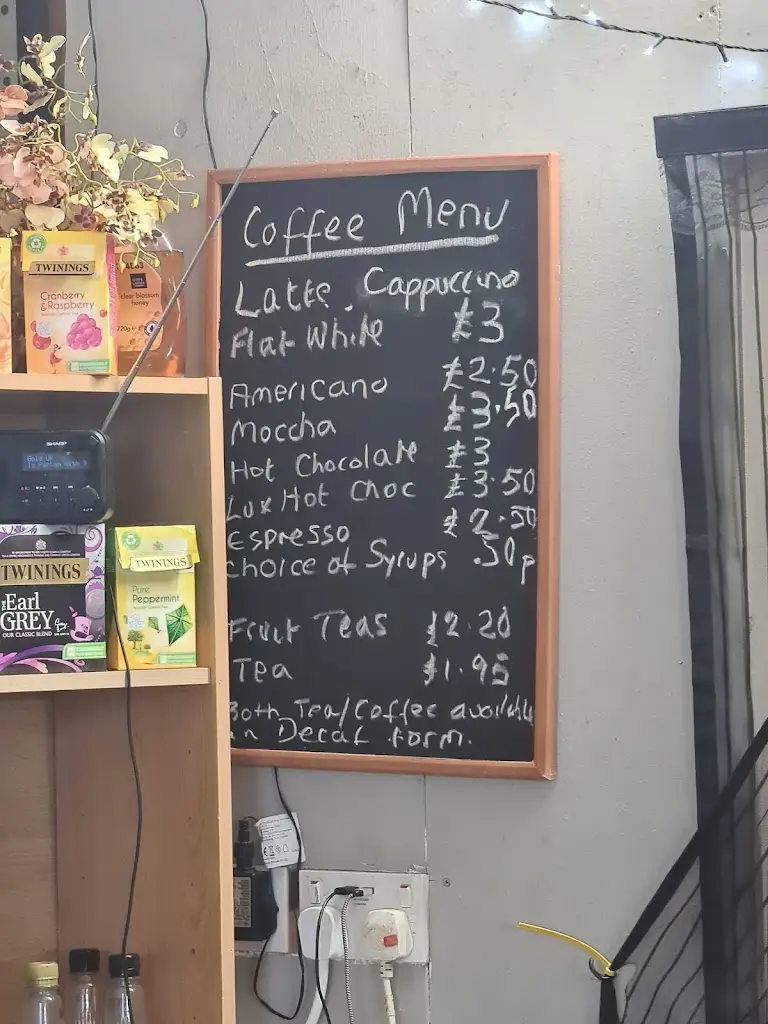 Coffee Menu
Latte, Cappuccino
Flat White £3
Americano £2.50
Moccha £3.50
Hot Chocolate £3
Lux Hot Choc £3.50
Espresso £2.50
Choice of Syrups 50p
Fruit Teas £2.20
Tea £1.95
Both Tea/Coffee available
in Decaf form.
TWININGS
Cranberry
& Raspberry
clear blossom
honey
720g
SHARP
TWININGS
THE Earl
GREY
OUR CLASSIC BLEND
TWININGS
Pure
Peppermint